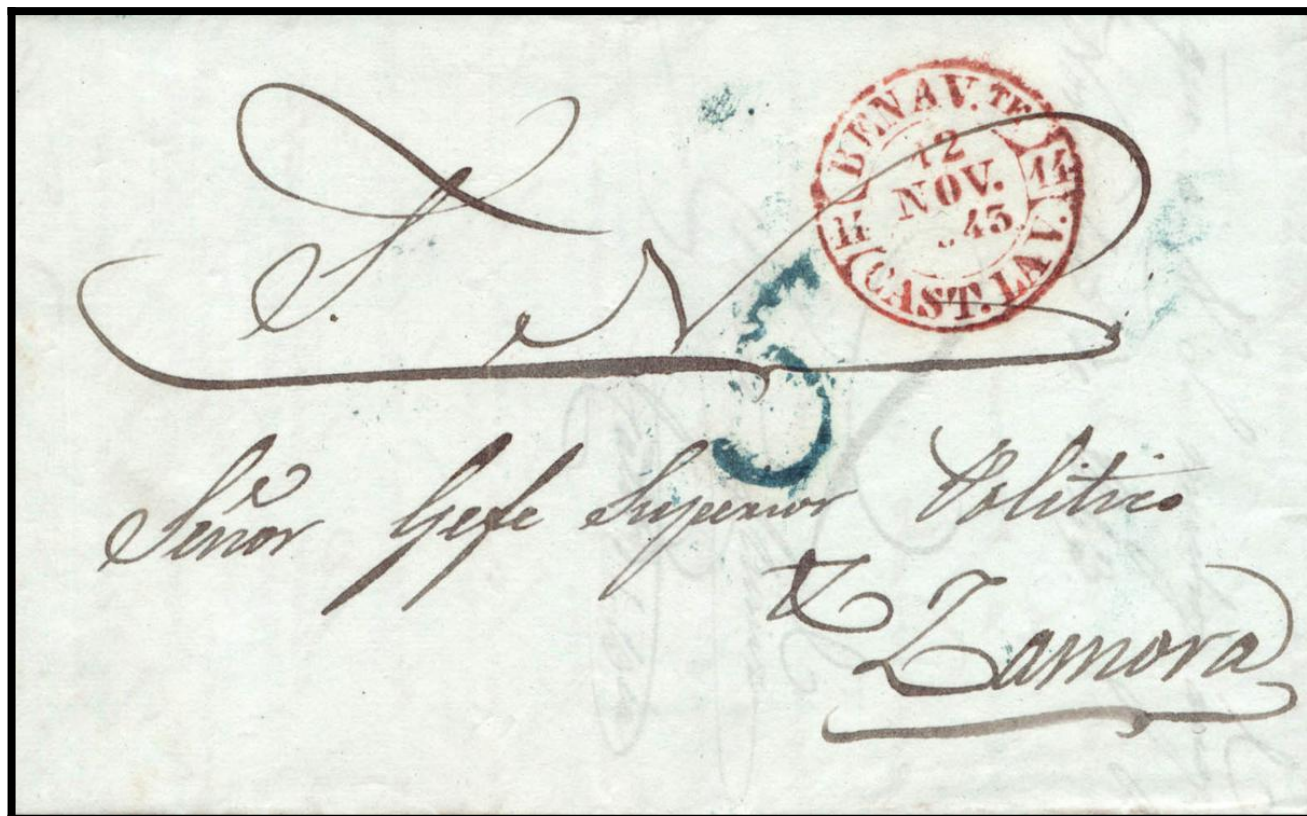 BENAV.TE
12
NOV.
43
11 11
CAST. LA V.
S. N.
5
Señor Gefe Superior Politico
de
Zamora